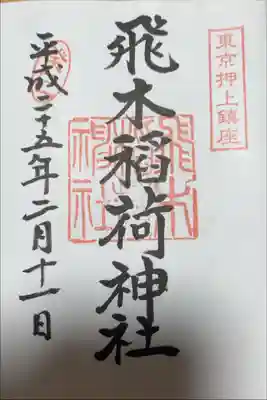 東京押上鎮座
飛木稲荷神社
平成二十五年二月十一日